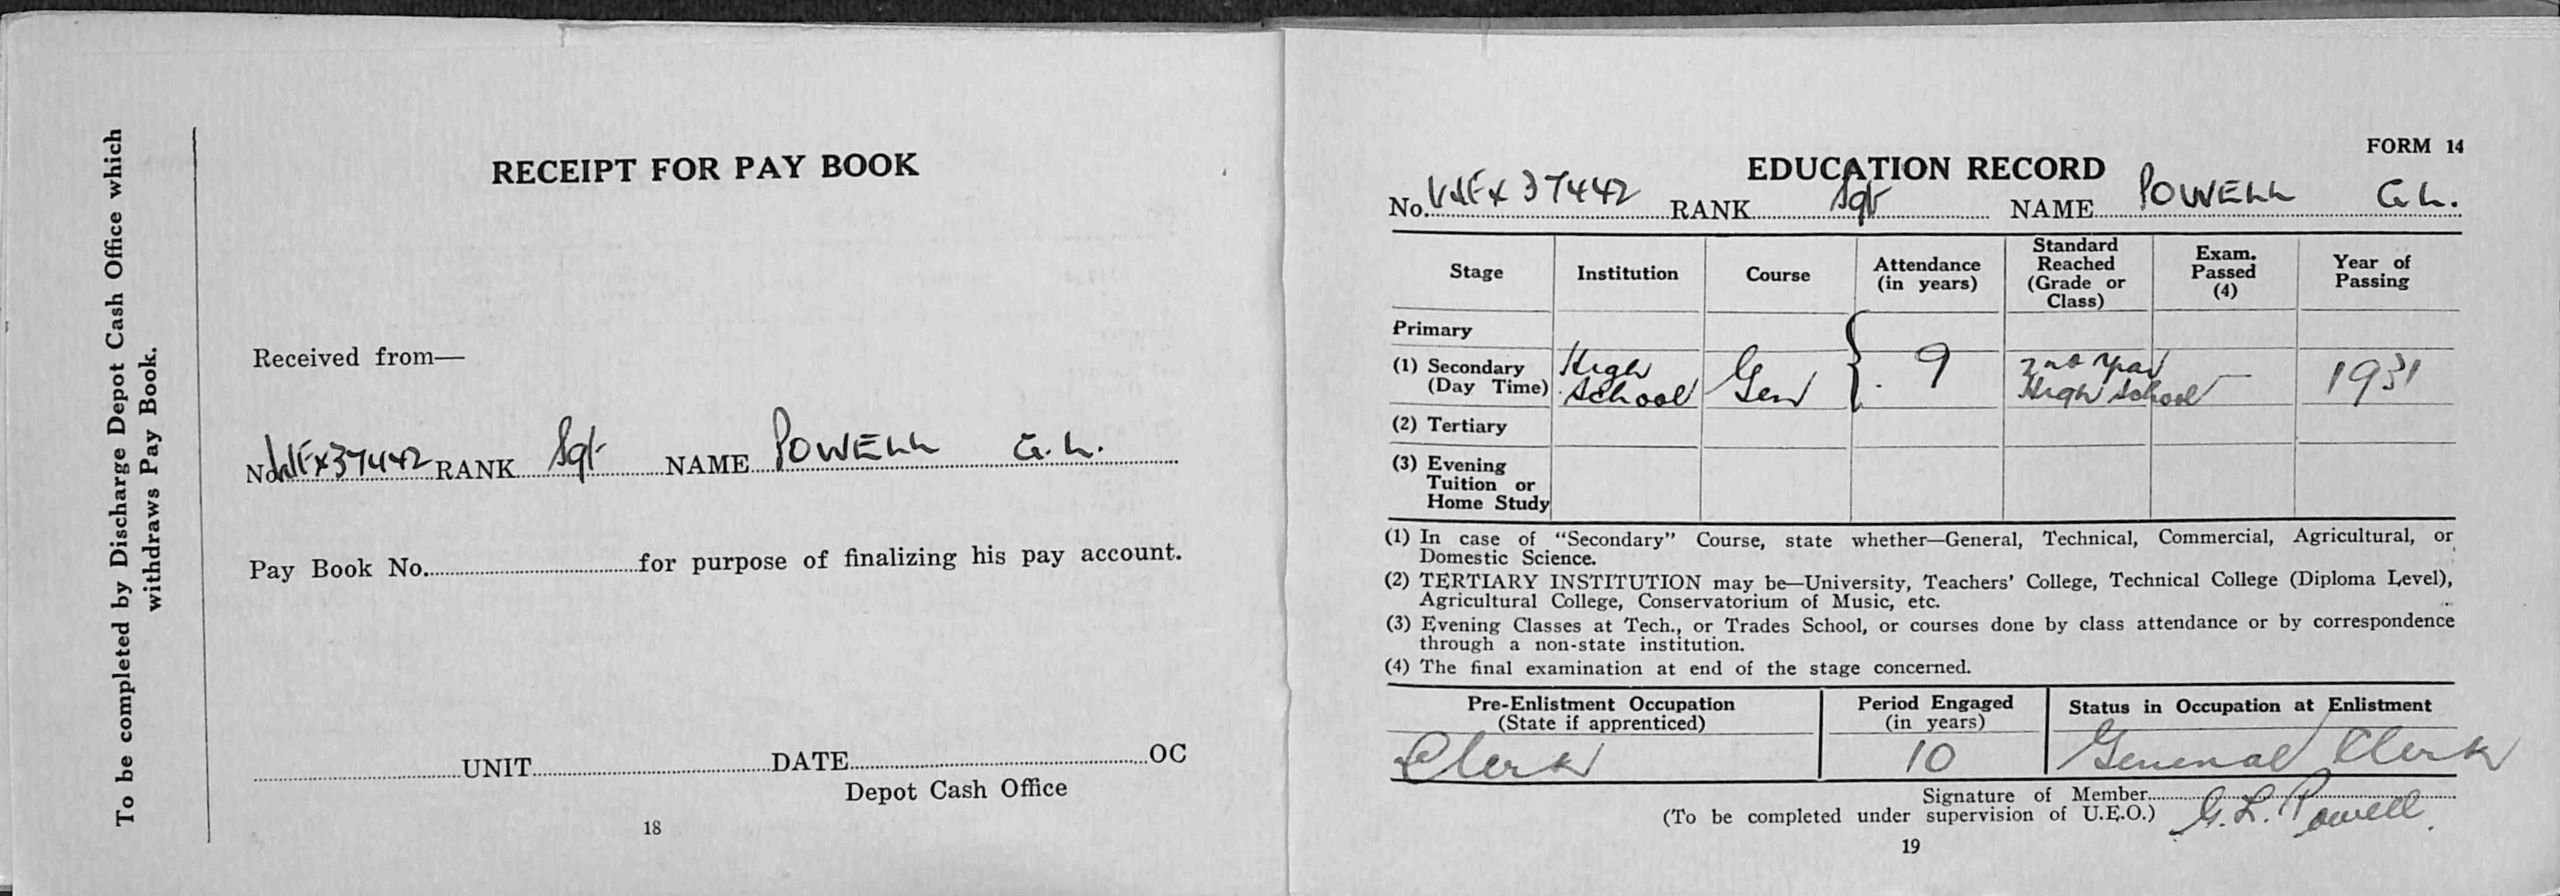 To be completed by Discharge Depot Cash Office which
withdraws Pay Book.
RECEIPT FOR PAY BOOK
Received from—
No. WFX37442 RANK Sgt NAME POWELL G.L.
Pay Book No. for purpose of finalizing his pay account.
UNIT DATE OC
Depot Cash Office
18
FORM 14
EDUCATION RECORD
No. WFX37442 RANK Sgt NAME POWELL G.L.
Stage Institution Course Attendance (in years) Standard Reached (Grade or Class) Exam. Passed (4) Year of Passing
Primary
(1) Secondary (Day Time) High School Gen 9 2nd Year High School — 1931
(2) Tertiary
(3) Evening Tuition or Home Study
(1) In case of "Secondary" Course, state whether—General, Technical, Commercial, Agricultural, or
Domestic Science.
(2) TERTIARY INSTITUTION may be—University, Teachers' College, Technical College (Diploma Level),
Agricultural College, Conservatorium of Music, etc.
(3) Evening Classes at Tech., or Trades School, or courses done by class attendance or by correspondence
through a non-state institution.
(4) The final examination at end of the stage concerned.
Pre-Enlistment Occupation (State if apprenticed) Period Engaged (in years) Status in Occupation at Enlistment
Clerk 10 General Clerk
Signature of Member G. L. Powell.
(To be completed under supervision of U.E.O.)
19